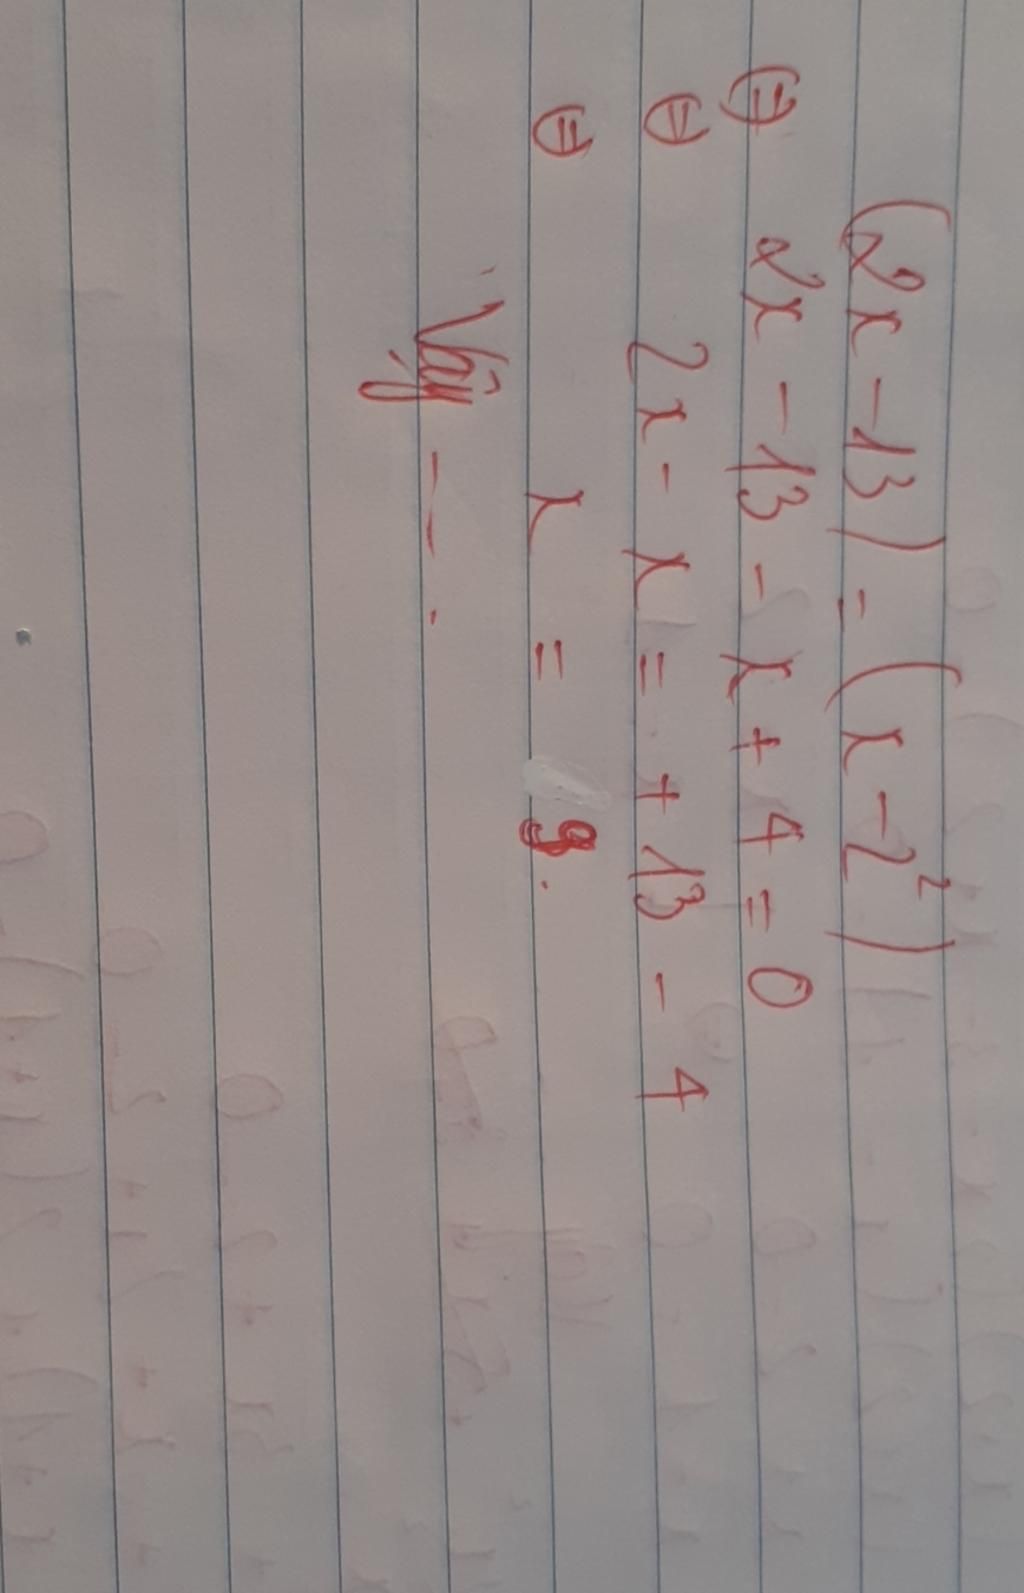 (2x - 13) = (x - 2²)
⇔ 2x - 13 - x + 4 = 0
⇔ 2x - x = + 13 - 4
⇔ x = 9.
Vậy - - .